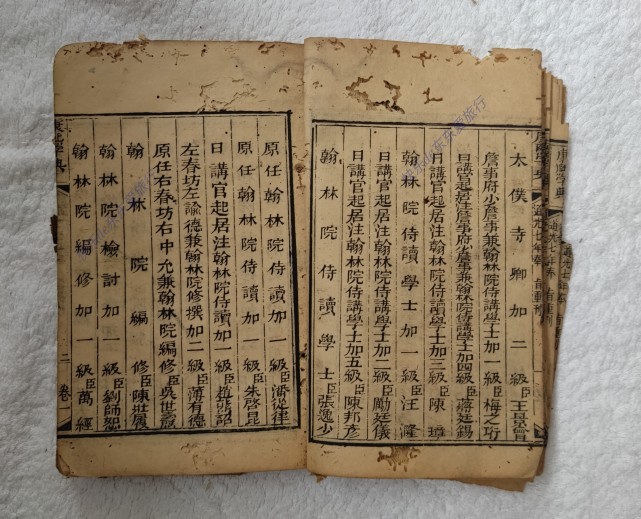 太僕寺卿加二級臣王景曾
詹事府少詹事兼翰林院侍講學士加一級臣梅之珩
日講官起居注詹事府少詹事兼翰林院侍講學士加四級臣蔣廷錫
日講官起居注翰林院侍讀學士加三級臣陳璋
翰林院侍讀學士加一級臣汪漋
日講官起居注翰林院侍講學士加二級臣勵廷儀
日講官起居注翰林院侍讀學士加五級臣陳邦彥
翰林院侍讀學士臣張逸少
原任翰林院侍讀加一級臣潘從律
原任翰林院侍讀加一級臣朱啓昆
日講官起居注翰林院侍讀加一級臣趙熊詔
左春坊左諭德兼翰林院修撰加二級臣薄有德
原任右春坊右中允兼翰林院編修臣吳世燾
翰林院編修臣陳壯履
翰林院檢討加一級臣劉師恕
翰林院編修加一級臣萬經
康熙字典
二
卷一